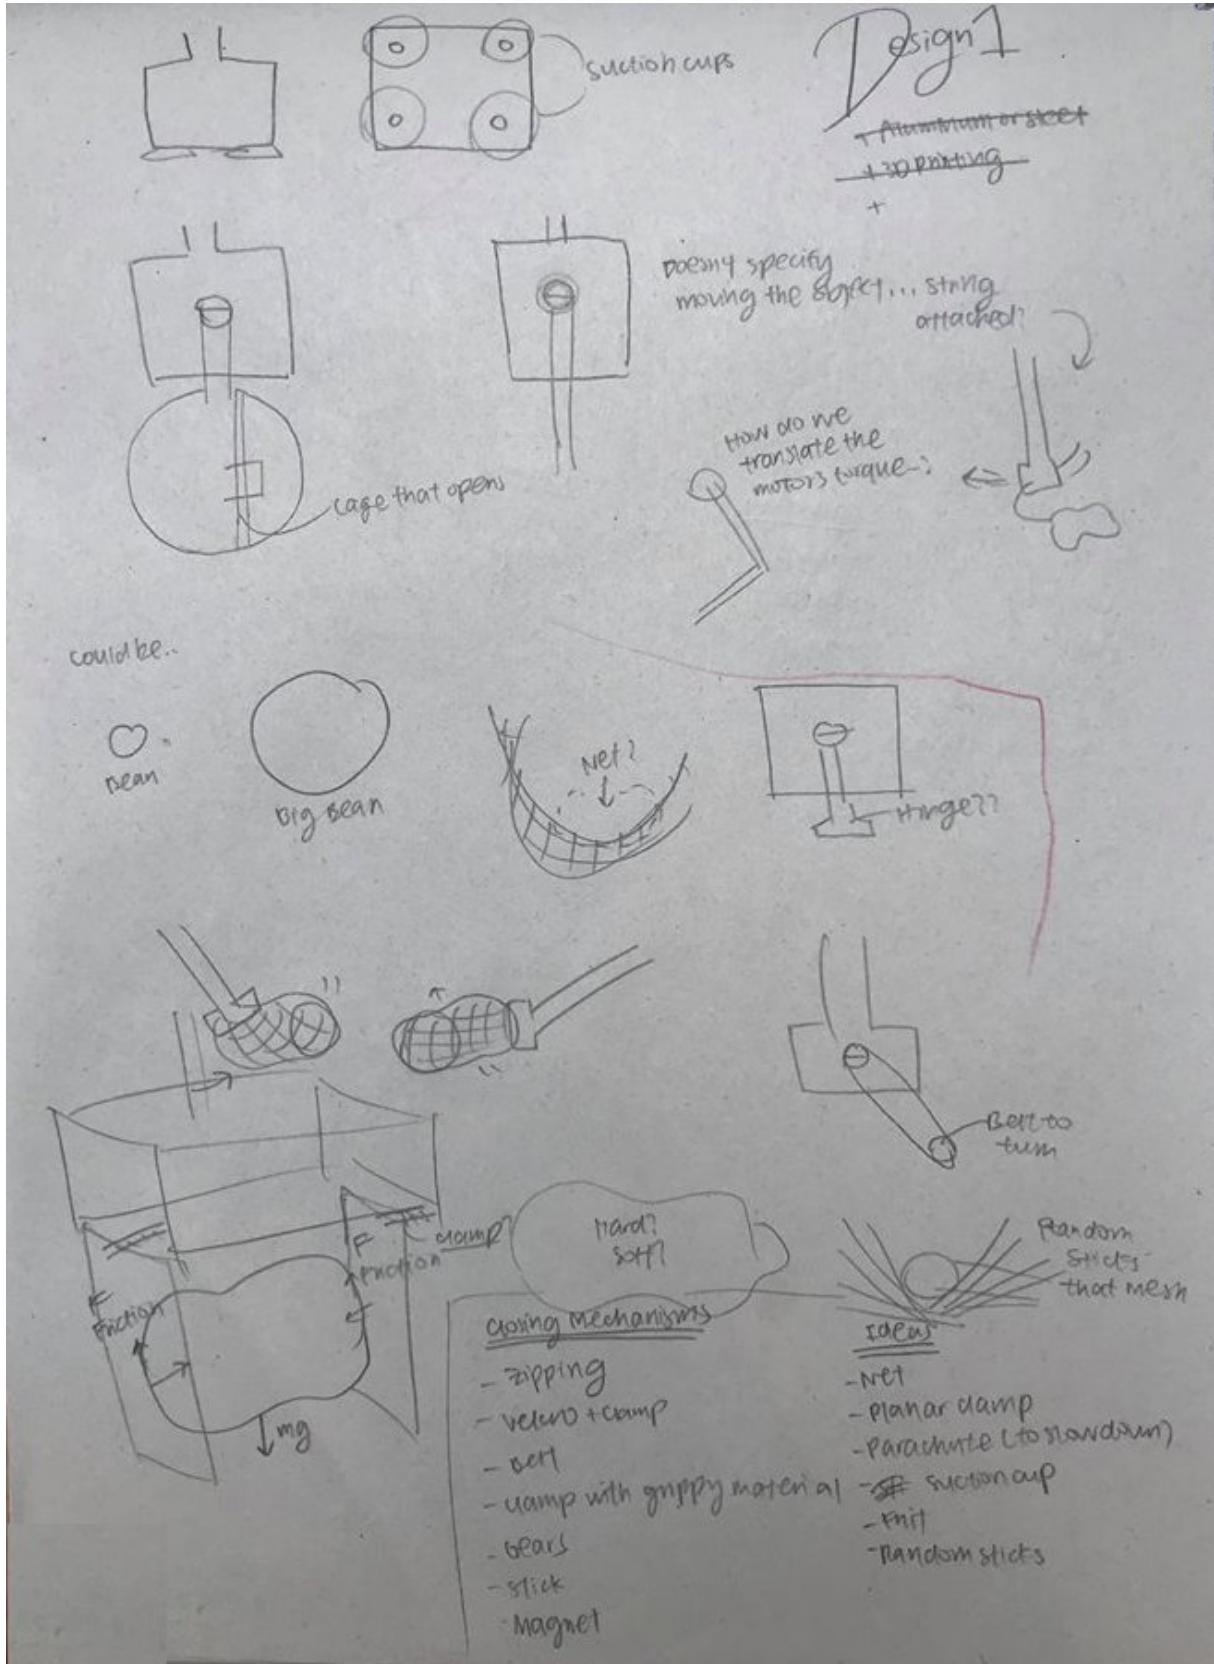 Design 1
suction cups
+ Aluminum or steel
+ 3D printing
+
Doesn't specify
moving the object... string
attached?
How do we
translate the
motor's torque?
cage that opens
could be..
Bean
Big Bean
Net?
Hinge??
Belt to
turn
clamp?
Hard?
Soft?
F
Friction
F
Friction
mg
Random
sticks
that mesh
Closing Mechanisms
- Zipping
- velcro + clamp
- Belt
- clamp with grippy material
- Gears
- stick
- Magnet
Ideas
- Net
- Planar clamp
- Parachute (to slow down)
- suction cup
- Random sticks